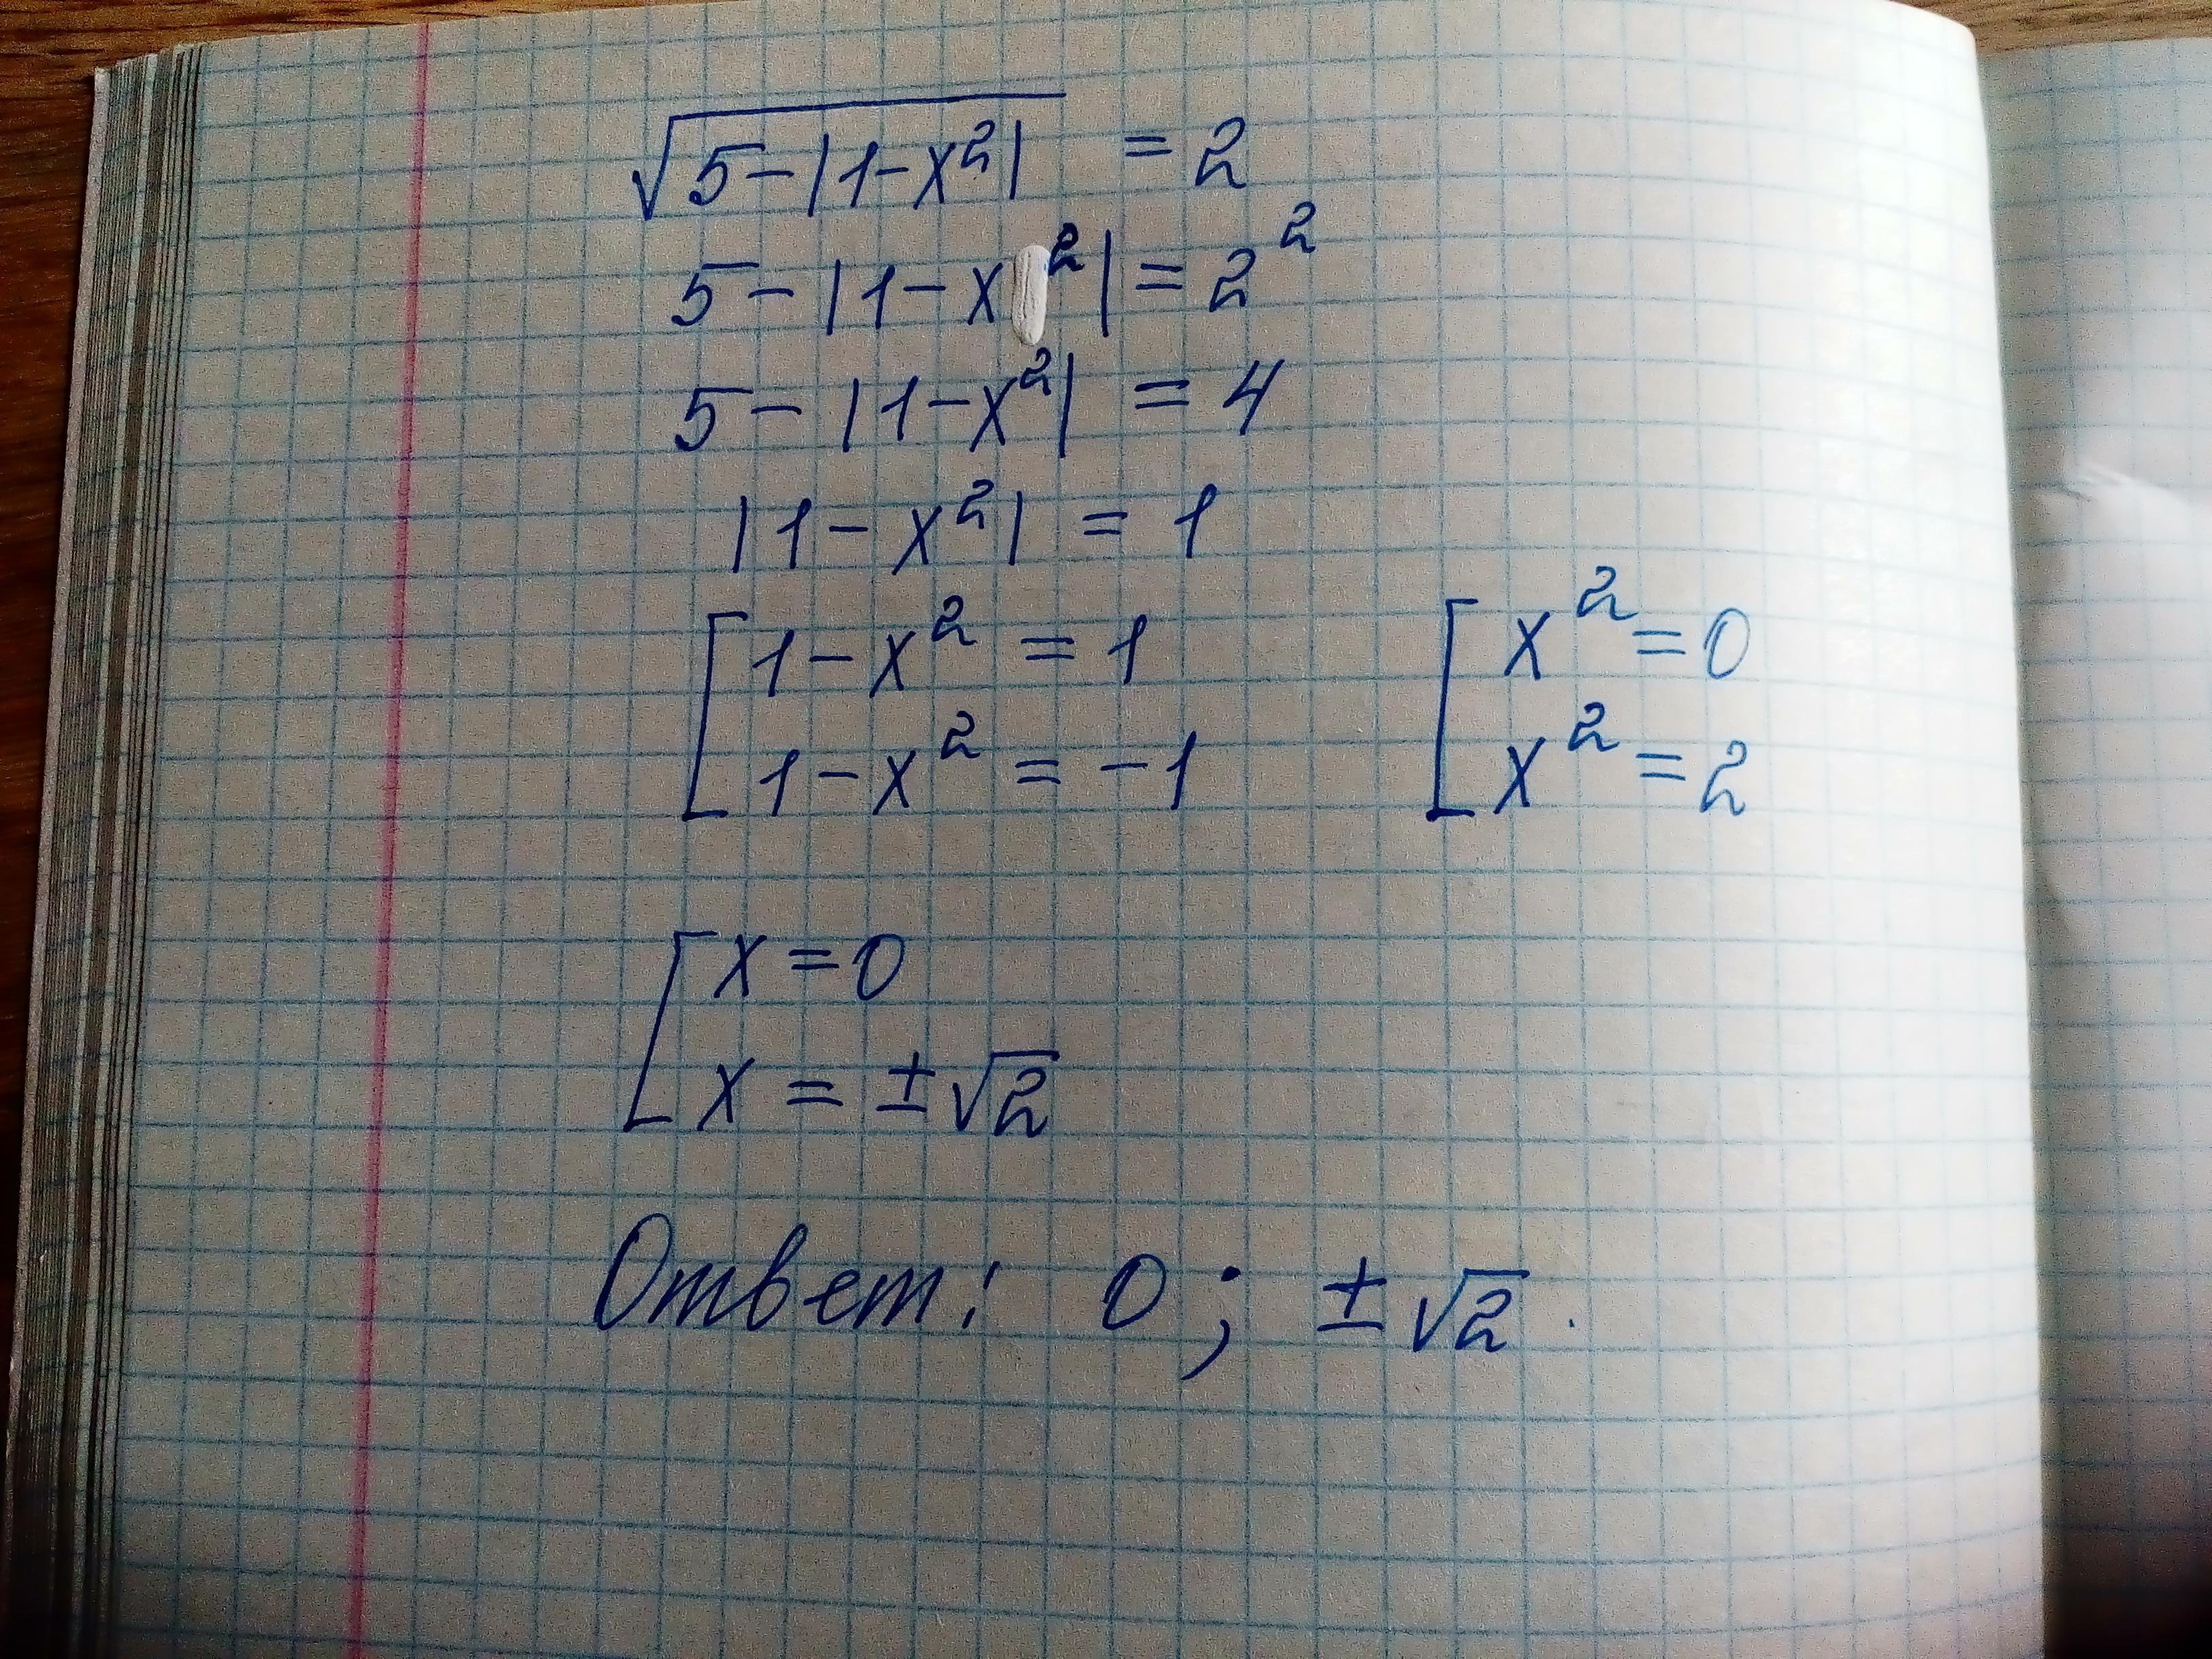 √(5-|1-x²|) = 2
5-|1-x²| = 2²
5-|1-x²| = 4
|1-x²| = 1
[1-x² = 1 [x² = 0
[1-x² = -1 [x² = 2
[x = 0
[x = ±√2
Ответ: 0; ±√2.